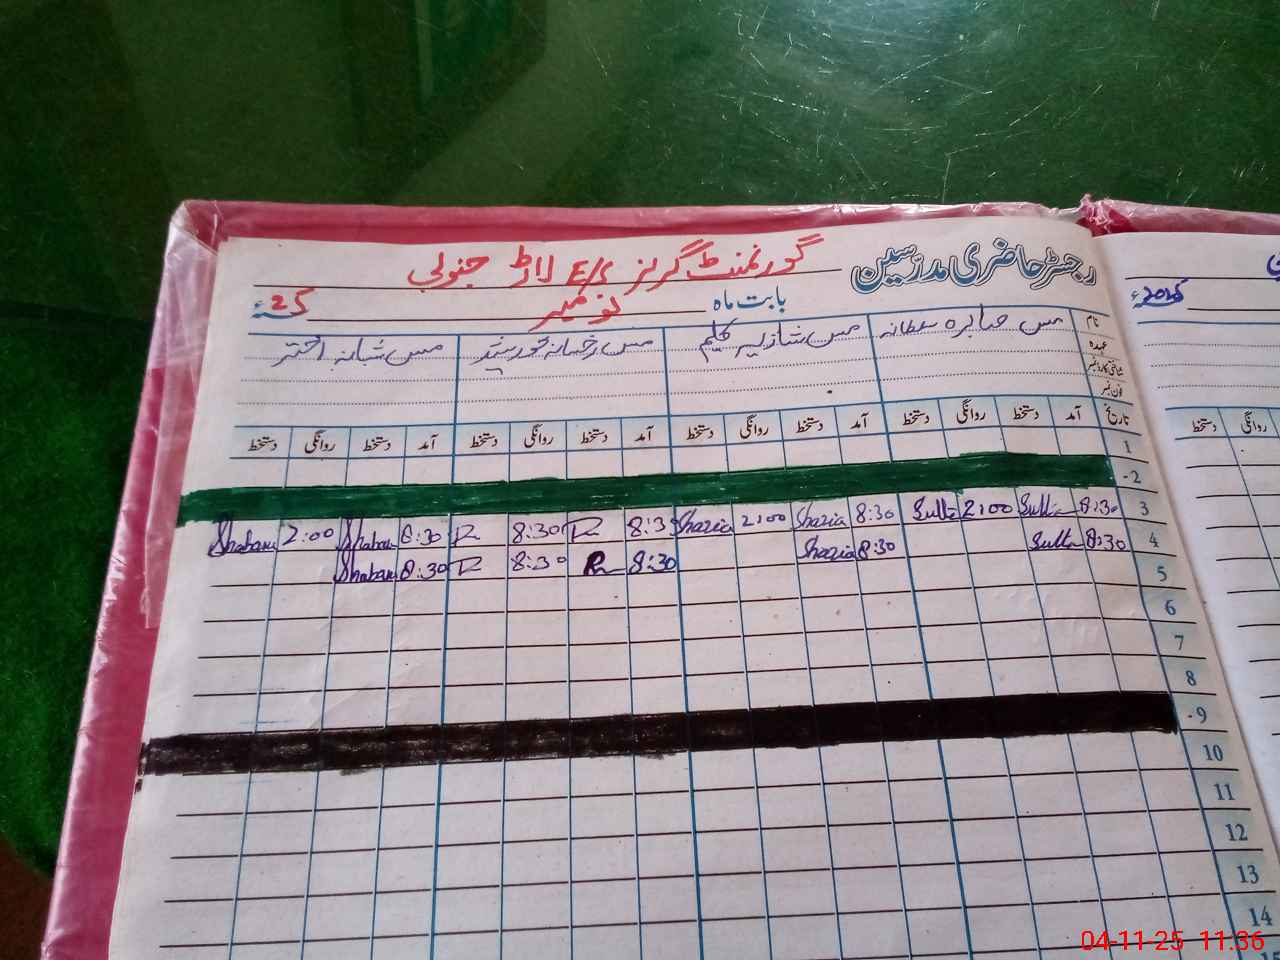 رجسٹر حاضری مدرسین گورنمنٹ گرلز E/S لاڑ جنوبی
بابت ماہ نومبر 25ء
2025ء
نام مس صابرہ سلطانہ مس شازیہ کلیم مس رخسانہ خورشید مس شبانہ اختر
عہدہ
شناختی کارڈ نمبر
فون نمبر
تاریخ آمد دستخط روانگی دستخط آمد دستخط روانگی دستخط آمد دستخط روانگی دستخط آمد دستخط روانگی دستخط
روانگی دستخط
1
2
3 8:30 Sultana 2:00 Sultana 8:30 Shazia 2:00 Shazia 8:30 R 8:30 R 8:30 Shabana 2:00 Shabana
4 8:30 Sultana 8:30 Shazia 8:30 R 8:30 R 8:30 Shabana
5
6
7
8
9
10
11
12
13
14
15
04-11-25 11:36